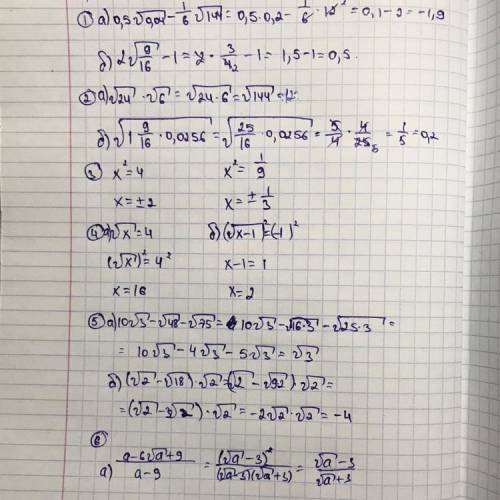 ① а) 0,5√0,04 - 1/6 √144 = 0,5·0,2 - 1/6 · 12² = 0,1 - 2 = -1,9
б) 2√9/16 - 1 = 2 · 3/4₂ - 1 = 1,5 - 1 = 0,5.
② а) √24 · √6 = √24·6 = √144 = 12
б) √1 9/16 · 0,0256 = √25/16 · 0,0256 = 5/4 · 4/25₅ = 1/5 = 0,2
③ x² = 4 x² = 1/9
x = ±2 x = ± 1/3
④ а) √x = 4 б) (√x-1)² = (-1)²
(√x)² = 4² x - 1 = 1
x = 16 x = 2
⑤ а) 10√3 - √48 - √75 = 10√3 - √16·3 - √25·3 =
= 10√3 - 4√3 - 5√3 = √3
б) (√2 - √18) · √2 = (√2 - √9·2) · √2 =
= (√2 - 3√2) · √2 = -2√2 · √2 = -4
⑥
а) a-6√a+9 / a-9 = (√a-3)² / (√a-3)(√a+3) = √a-3 / √a+3